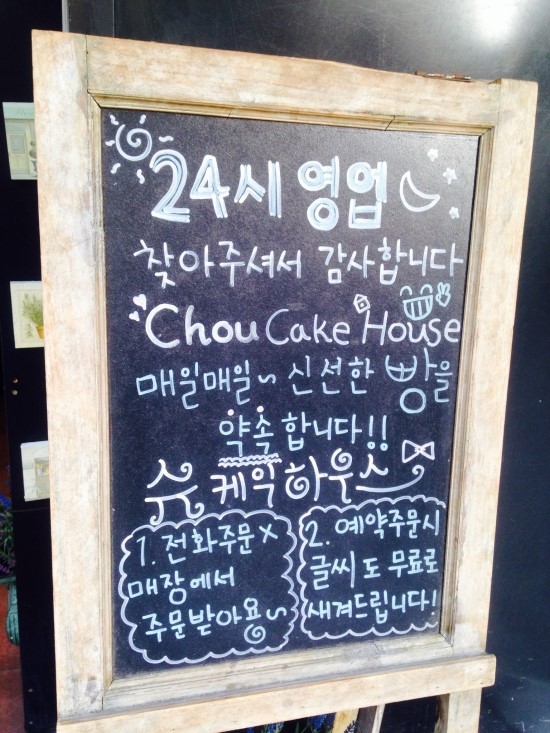 24시 영업
찾아주셔서 감사합니다
Chou Cake House
매일매일~ 신선한 빵을
약속합니다!!
슈케익하우스
1. 전화주문 x
매장에서
주문받아용~
2. 예약주문시
글씨도 무료로
새겨드립니다!